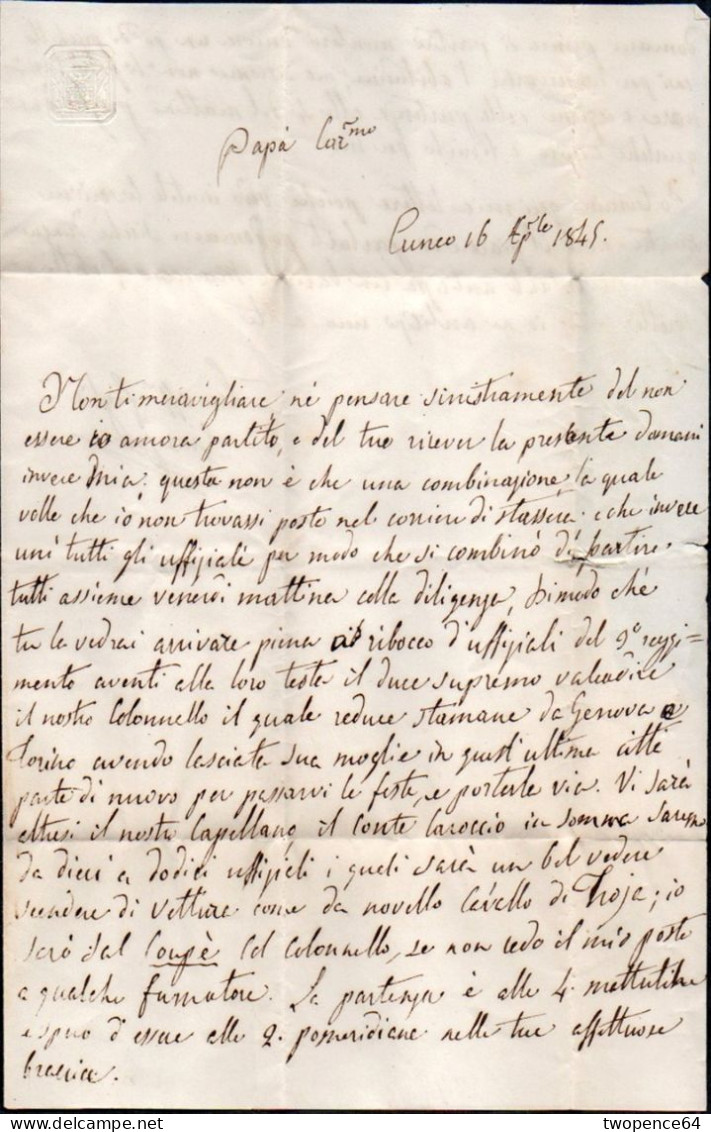 Papà Car.mo
Cuneo 16 Ap.le 1845.
Non ti meravigliare, né pensare sinistramente del non
essere io ancora partito, e del tuo ricever la presente domani
invece mia: questa non è che una combinazione la quale
volle che io non trovassi posto nel corriere di stassera e che invece
uni tutti gli uffiziali per modo che si combinò di partire
tutti assieme venerdì mattina colla diligenza, dimodo ché
tu la vedrai arrivare piena a ribocco d'uffiziali del 9.o reggi=
mento aventi alla loro testa il duce supremo valeadire
il nostro Colonnello il quale reduce stamane da Genova e
Torino avendo lasciata sua moglie in quest'ultima città
parte di nuovo per passarvi le feste, e portarle via. Vi sarà
altresì il nostro Capellano, il Conte Caroccio in somma saremo
da dieci a dodici uffiziali i quali sarà un bel vedere
scendere di vettura come da novello Cavallo di Troja; io
sarò sul Coupè col Colonnello, se non cedo il mio posto
a qualche fumatore. La partenza è alle 4. mattutine
e spero d'essere alle 2. pomeridiane nelle tue affettuose
braccia.
twopence64